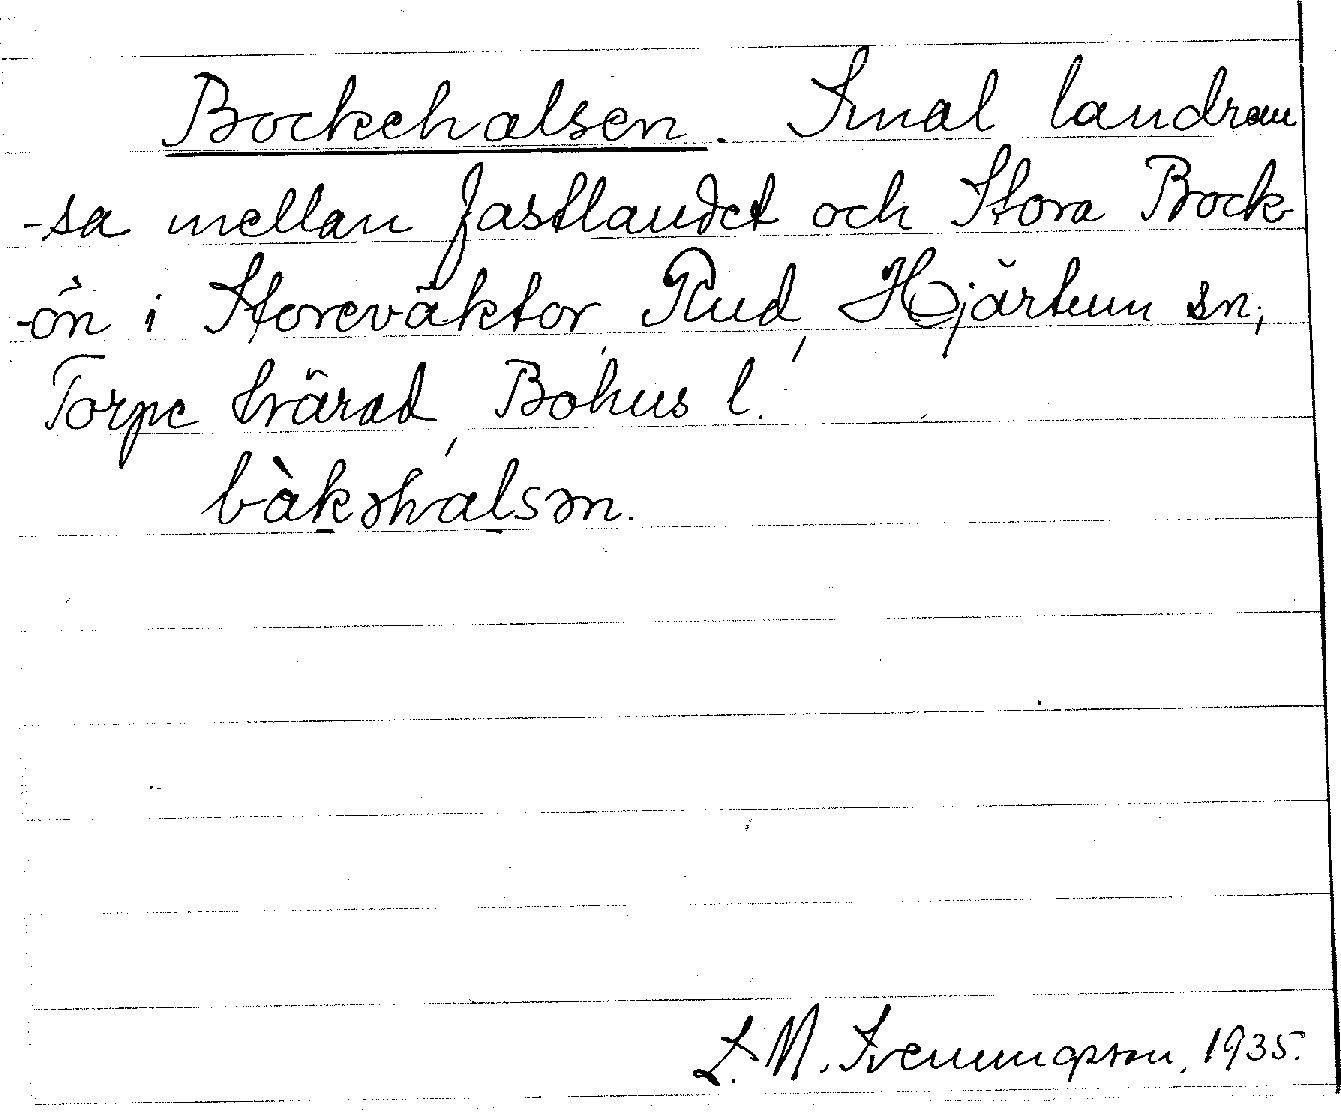 Bockehalsen. Smal landrem
-sa mellan fastlandet och Stora Bock-
-ön i Storeväktor, Rud, Hjärtum sn,
Torpe härad, Bohus l.
bàkəhalsən.
L. M. Svenungsson, 1935.